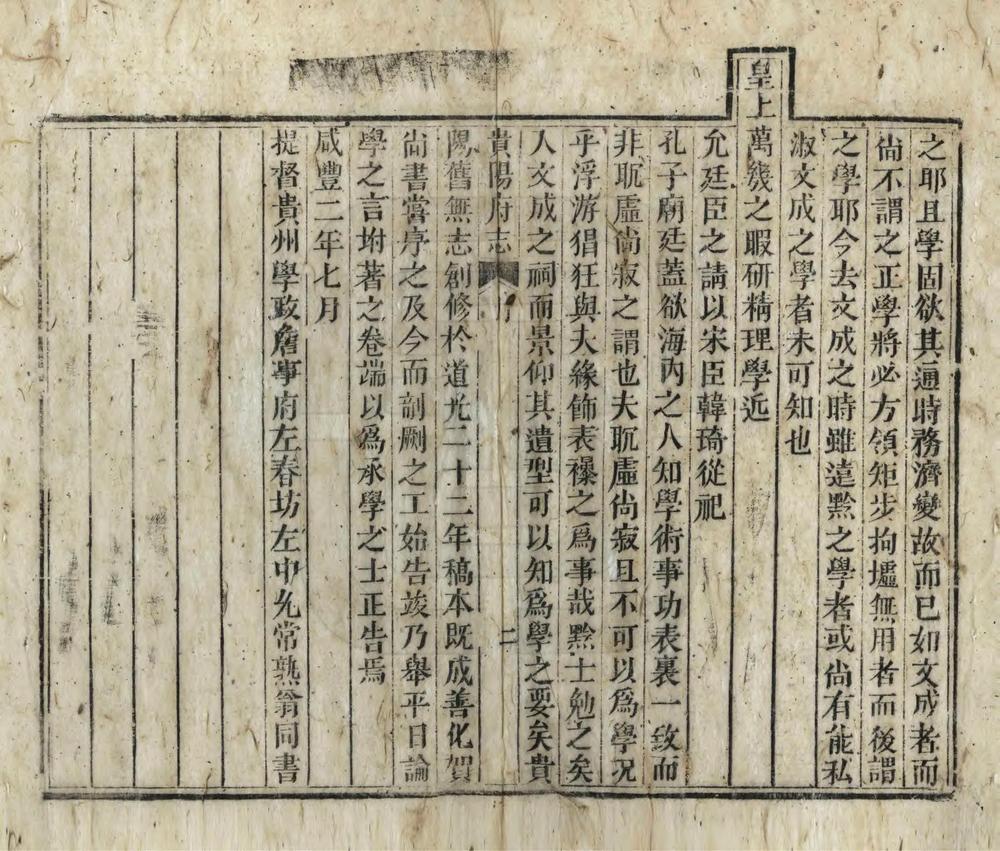 之耶且學固欲其通時務濟變故而已如文成者而
尙不謂之正學將必方領矩步拘墟無用者而後謂
之學耶今去文成之時雖遠黔之學者或尙有能私
淑文成之學者未可知也
皇上萬幾之暇研精理學近
允廷臣之請以宋臣韓琦從祀
孔子廟廷蓋欲海內之人知學術事功表裏一致而
非耽虛尙寂之謂也夫耽虛尙寂且不可以爲學況
乎浮游猖狂與夫緣飾表襮之爲事哉黔士勉之矣
人文成之祠而景仰其遺型可以知爲學之要矣貴
貴陽府志 序 二
陽舊無志創修於道光二十二年稿本既成善化賀
尙書嘗序之及今而剞劂之工始告竣乃舉平日論
學之言坿著之卷端以爲承學之士正告焉
咸豐二年七月
提督貴州學政詹事府左春坊左中允常熟翁同書